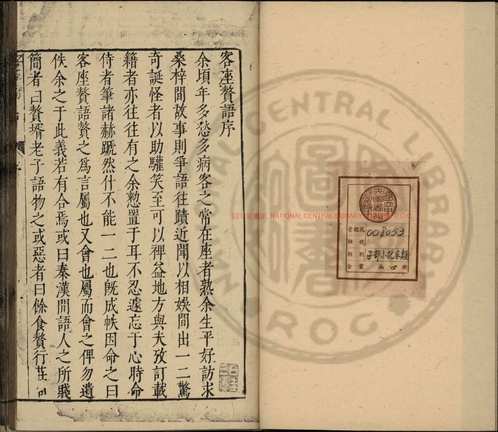 客座贅語序
余頃年多愁多病客之常在座者熟余生平好訪求
桑梓間故事則爭語往蹟近聞以相娛間出一二驚
奇誕怪者以助驩笑至可以裨益地方與夫攷訂載
籍者亦往往有之余愁置于耳不忍遽忘于心時命
侍者筆諸赫蹏然什不能一二也旣成帙因命之曰
客座贅語贅之為言屬也又會也屬而會之俾勿遺
佚余之于此義若有合焉或曰秦漢間語人之所賤
簡者曰贅壻老子語物之或惡者曰餘食贅行莊
NATIONAL CENTRAL LIBRARY
R.O.C.
008053
子部小說家類